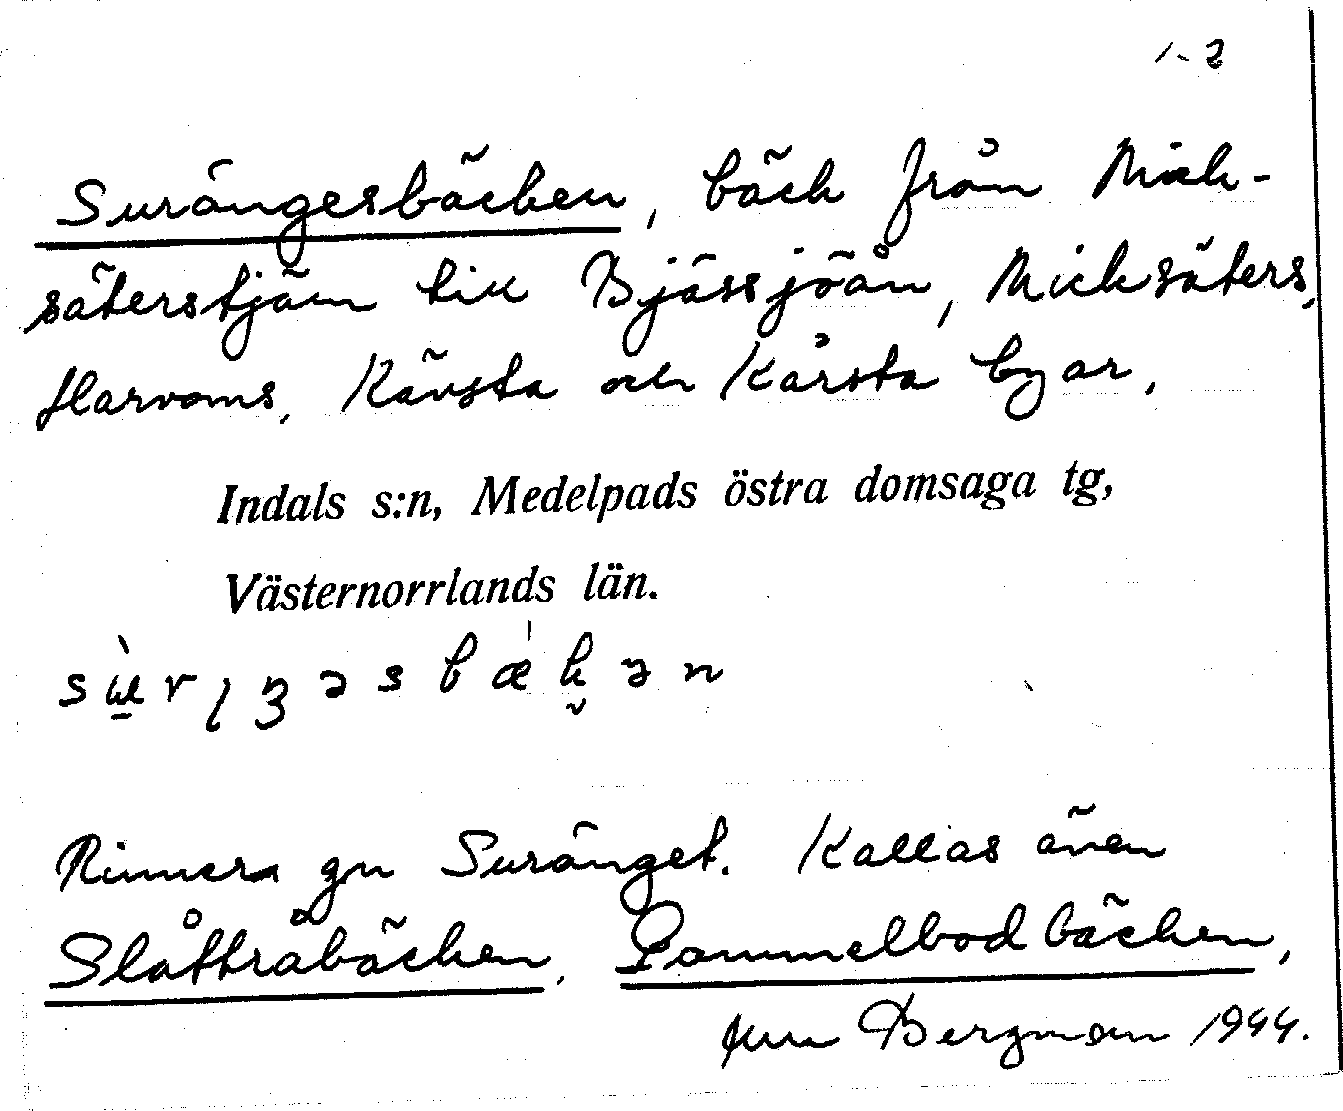 1-2
Surängesbäcken, bäck från Mick-
säterstjärn till Bjässjöån, Micksäters,
Harvoms, Kävsta och Kårsta byar,
Indals s:n, Medelpads östra domsaga tg,
Västernorrlands län.
Rinner gn Suränget. Kallas även
Slåttråbäcken, Gammelbodbäcken,
Bergman 1944.